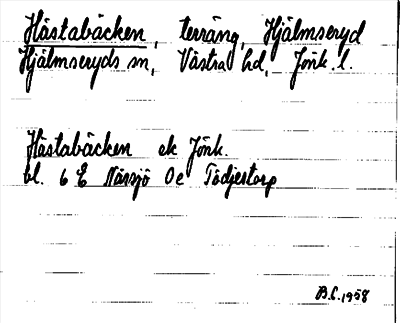 Hästabäcken, terräng, Hjälmseryd
Hjälmseryds sn, Västra hd, Jönk. l.
Hästabäcken ek Jönk.
bl. 6 E Nässjö 0e Tädjestorp
B.C. 1958